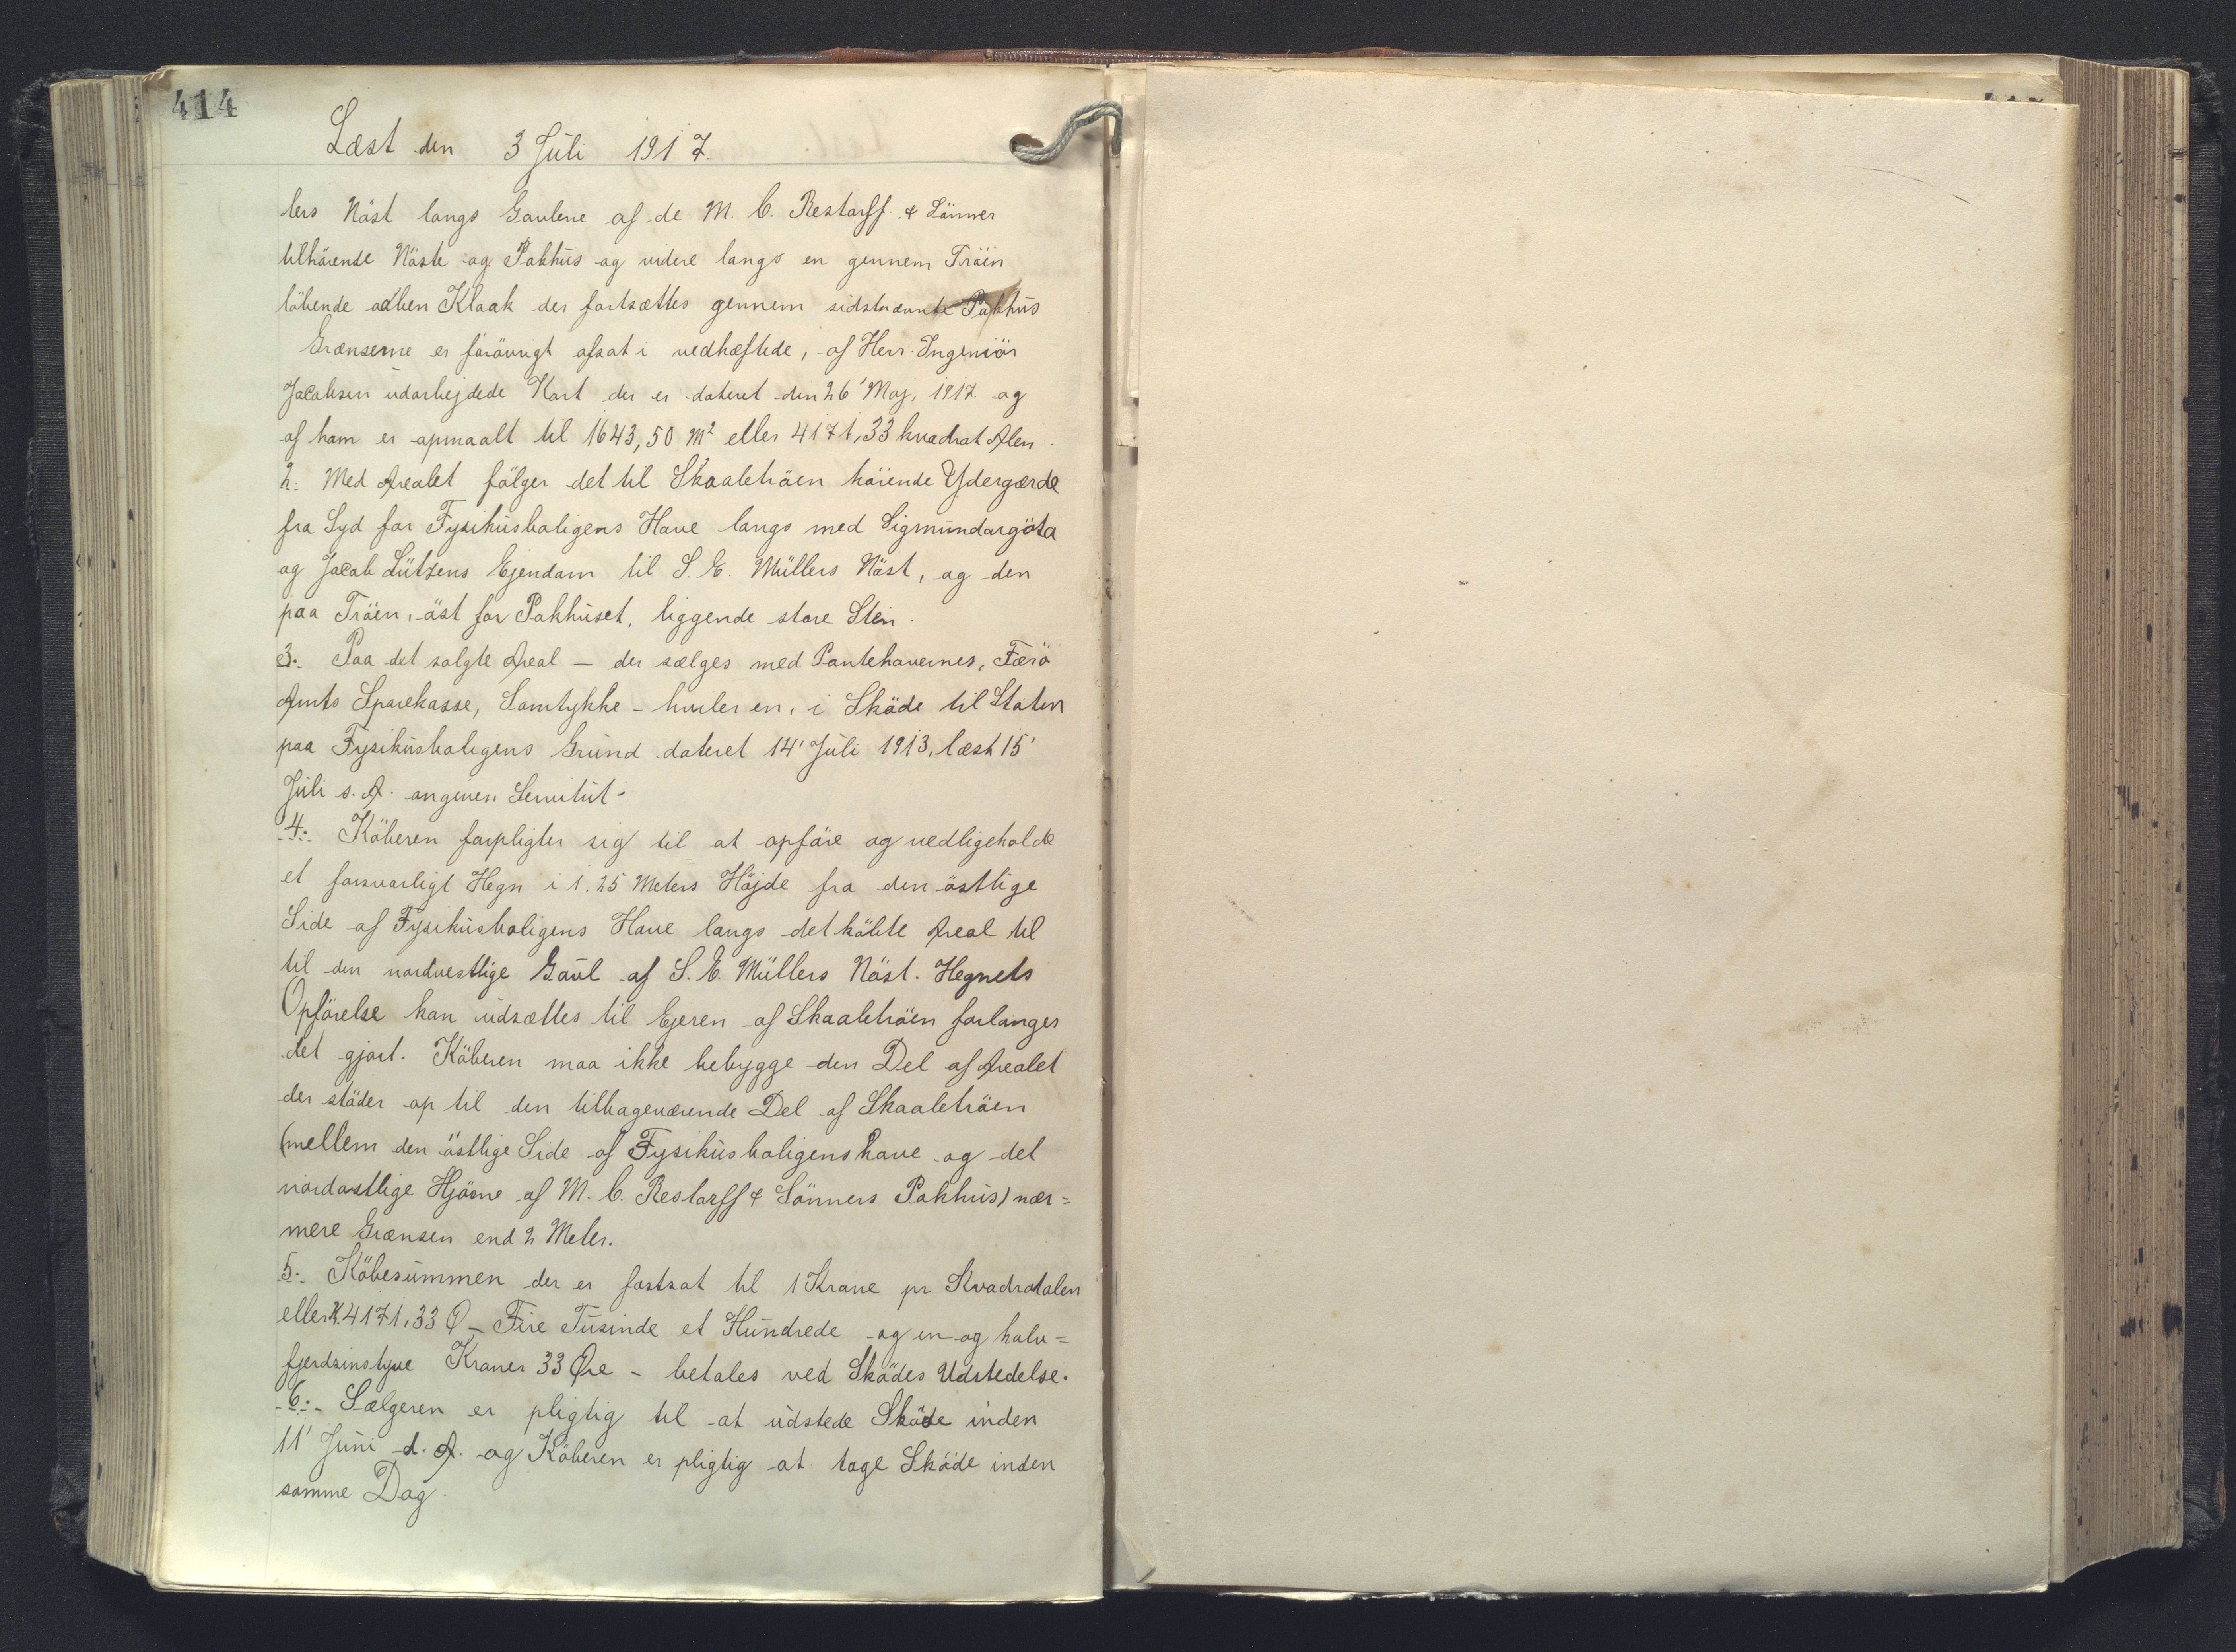 414
Læst den 3 Juli 1917.
lers Nöst langs Gavlene af de M. C. Restorff & Sönner
tilhörende Nöste og Pakhus og videre langs en gennem Tröin
löbende aaben Kloak der fortsættes gennem sidstnævnte Pakhus
Grænserne er forövrigt afsat i vedhæftede, af Herr. Ingeniör
Jacobsen udarbejdede Kort der er dateret den 26' Maj. 1917 og
af ham er opmaalt til 1643,50 M² eller 4171,33 kvadrat Alen.
2. Med Arealet fölger det til Skaaletröen hörende Ydergærde
fra Syd for Fysikusboligens Have langs med Sigmundargöta
og Jacob Lützens Ejendom til S. E. Müllers Nöst, og den
paa Tröen, öst for Pakhuset, liggende store Sten.
3. Paa det solgte Areal — der sælges med Pantehavernes, Færö
Amts Sparekasse, Samtykke - hviler en, i Sköde til Staten
paa Fysikusboligens Grund dateret 14' Juli 1913, læst 15'
Juli s. A. angiven Servitut-
4. Köberen forpligter sig til at opföre og vedligeholde
et forsvarligt Hegn i 1.25 Meters Höjde fra den östlige
Side af Fysikusboligens Have langs det köbte Areal til
til den nordvestlige Gavl af S. E. Müllers Nöst. Hegnets
Opförelse kan udsættes til Ejeren af Skaaletröen forlanger
det gjort. Köberen maa ikke bebygge den Del af Arealet
der stöder op til den tilbageværende Del af Skaaletröen
(mellem den östlige Side af Fysikusboligens have og det
nordostlige Hjörne af M. C. Restorff & Sönners Pakhus) nær=
mere Grænsen end 2 Meter.
5. Köbesummen der er fastsat til 1 Krone pr Kvadratalen
eller K. 4171,33 Ø - Fire Tusinde et Hundrede og en og halv=
fjerdsinstyve Kroner 33 Øre - betales ved Sködes Udstedelse.
6. Sælgeren er pligtig til at udstede Sköde inden
11' Juni d. A. og Köberen er pligtig at tage Sköde inden
samme Dag.